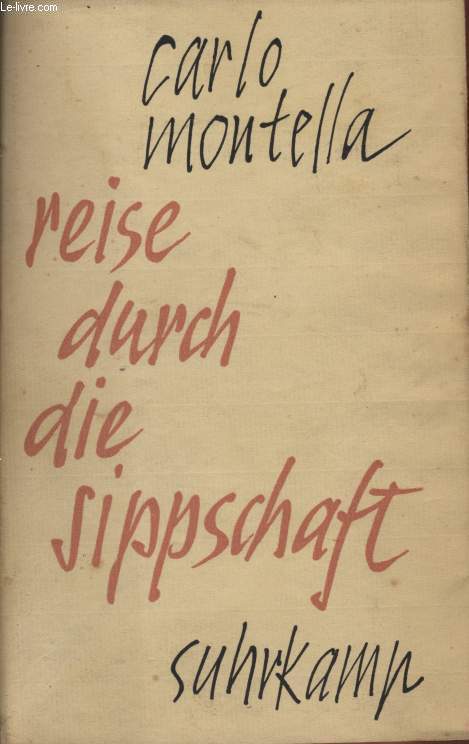 Le-livre.com
carlo
montella
reise
durch
die
sippschaft
suhrkamp